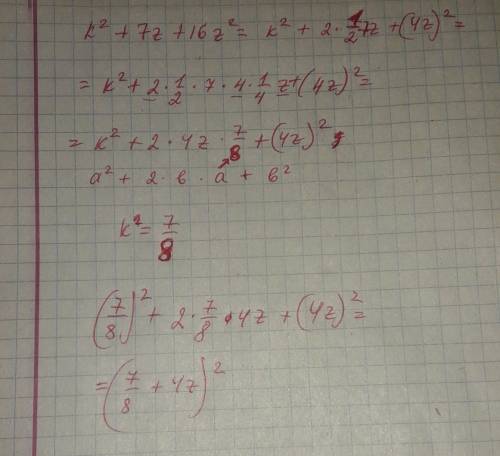 k² + 7z + 16z² = k² + 2 · 1/2 · 7z + (4z)² =
= k² + 2 · 1/2 · 7 · 4 · 1/4 z + (4z)² =
= k² + 2 · 4z · 7/8 + (4z)²
a² + 2 · в · a + в²
k² = 7/8
(7/8)² + 2 · 7/8 · 4z + (4z)² =
= (7/8 + 4z)²